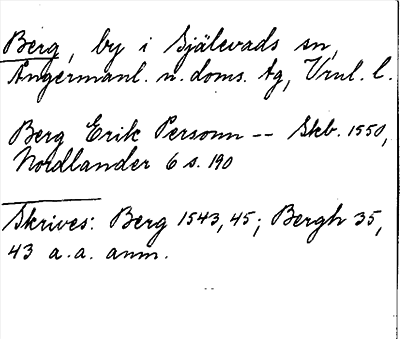 Berg, by i Själevads sn,
Ångermanl. n. doms. tg, Vrnl. l.
Berg Erik Personn -- Skb. 1550,
Nordlander 6 s. 190
Skrives: Berg 1543, 45; Bergh 35,
43 a.a. anm.